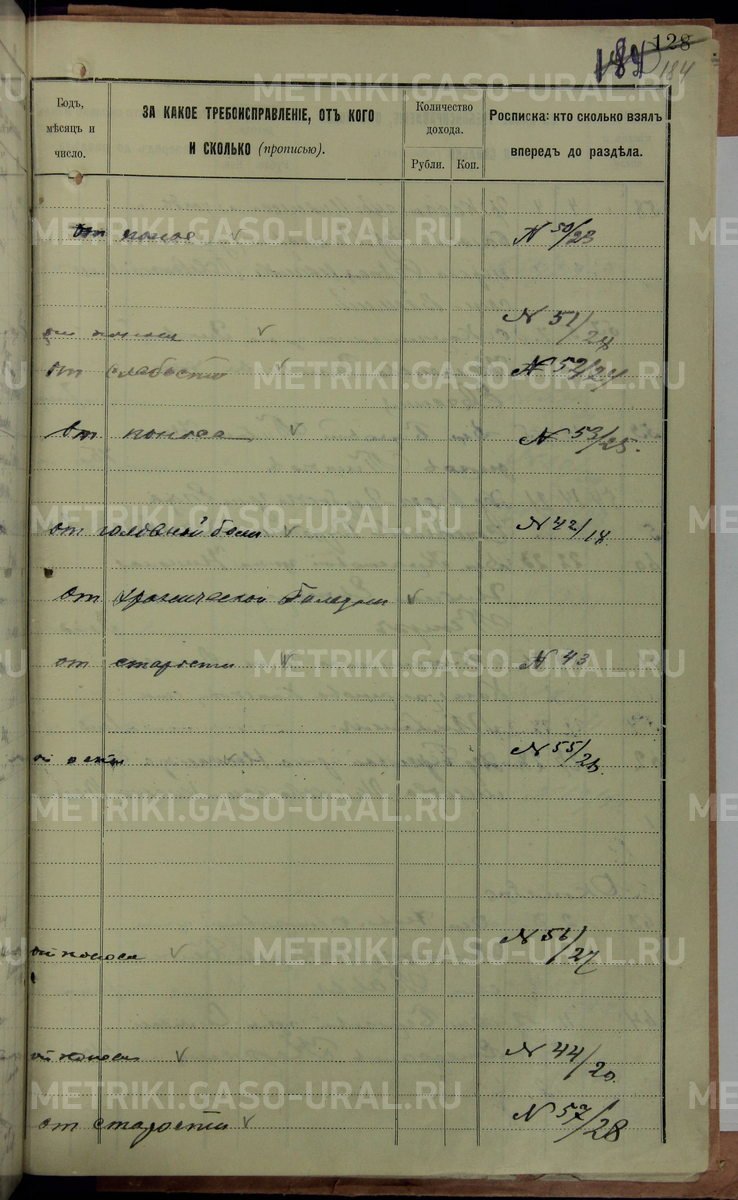 128
184
184
Годъ, мѣсяцъ и число.
ЗА КАКОЕ ТРЕБОИСПРАВЛЕНІЕ, ОТЪ КОГО И СКОЛЬКО (прописью).
Количество дохода.
Рубли.
Коп.
Росписка: кто сколько взялъ впередъ до раздѣла.
от поноса √ N 50/23
от поноса √ N 51/24
от слабости √ N 52/24
от поноса √ N 53/25.
от головной боли √ N 42/18
От хронической √
от старости √ N 43
N 55/26
от поноса √ N 56/27
от поноса √ N 44/20.
от старости √ N 57/28
METRIKI.GASO-URAL.RU